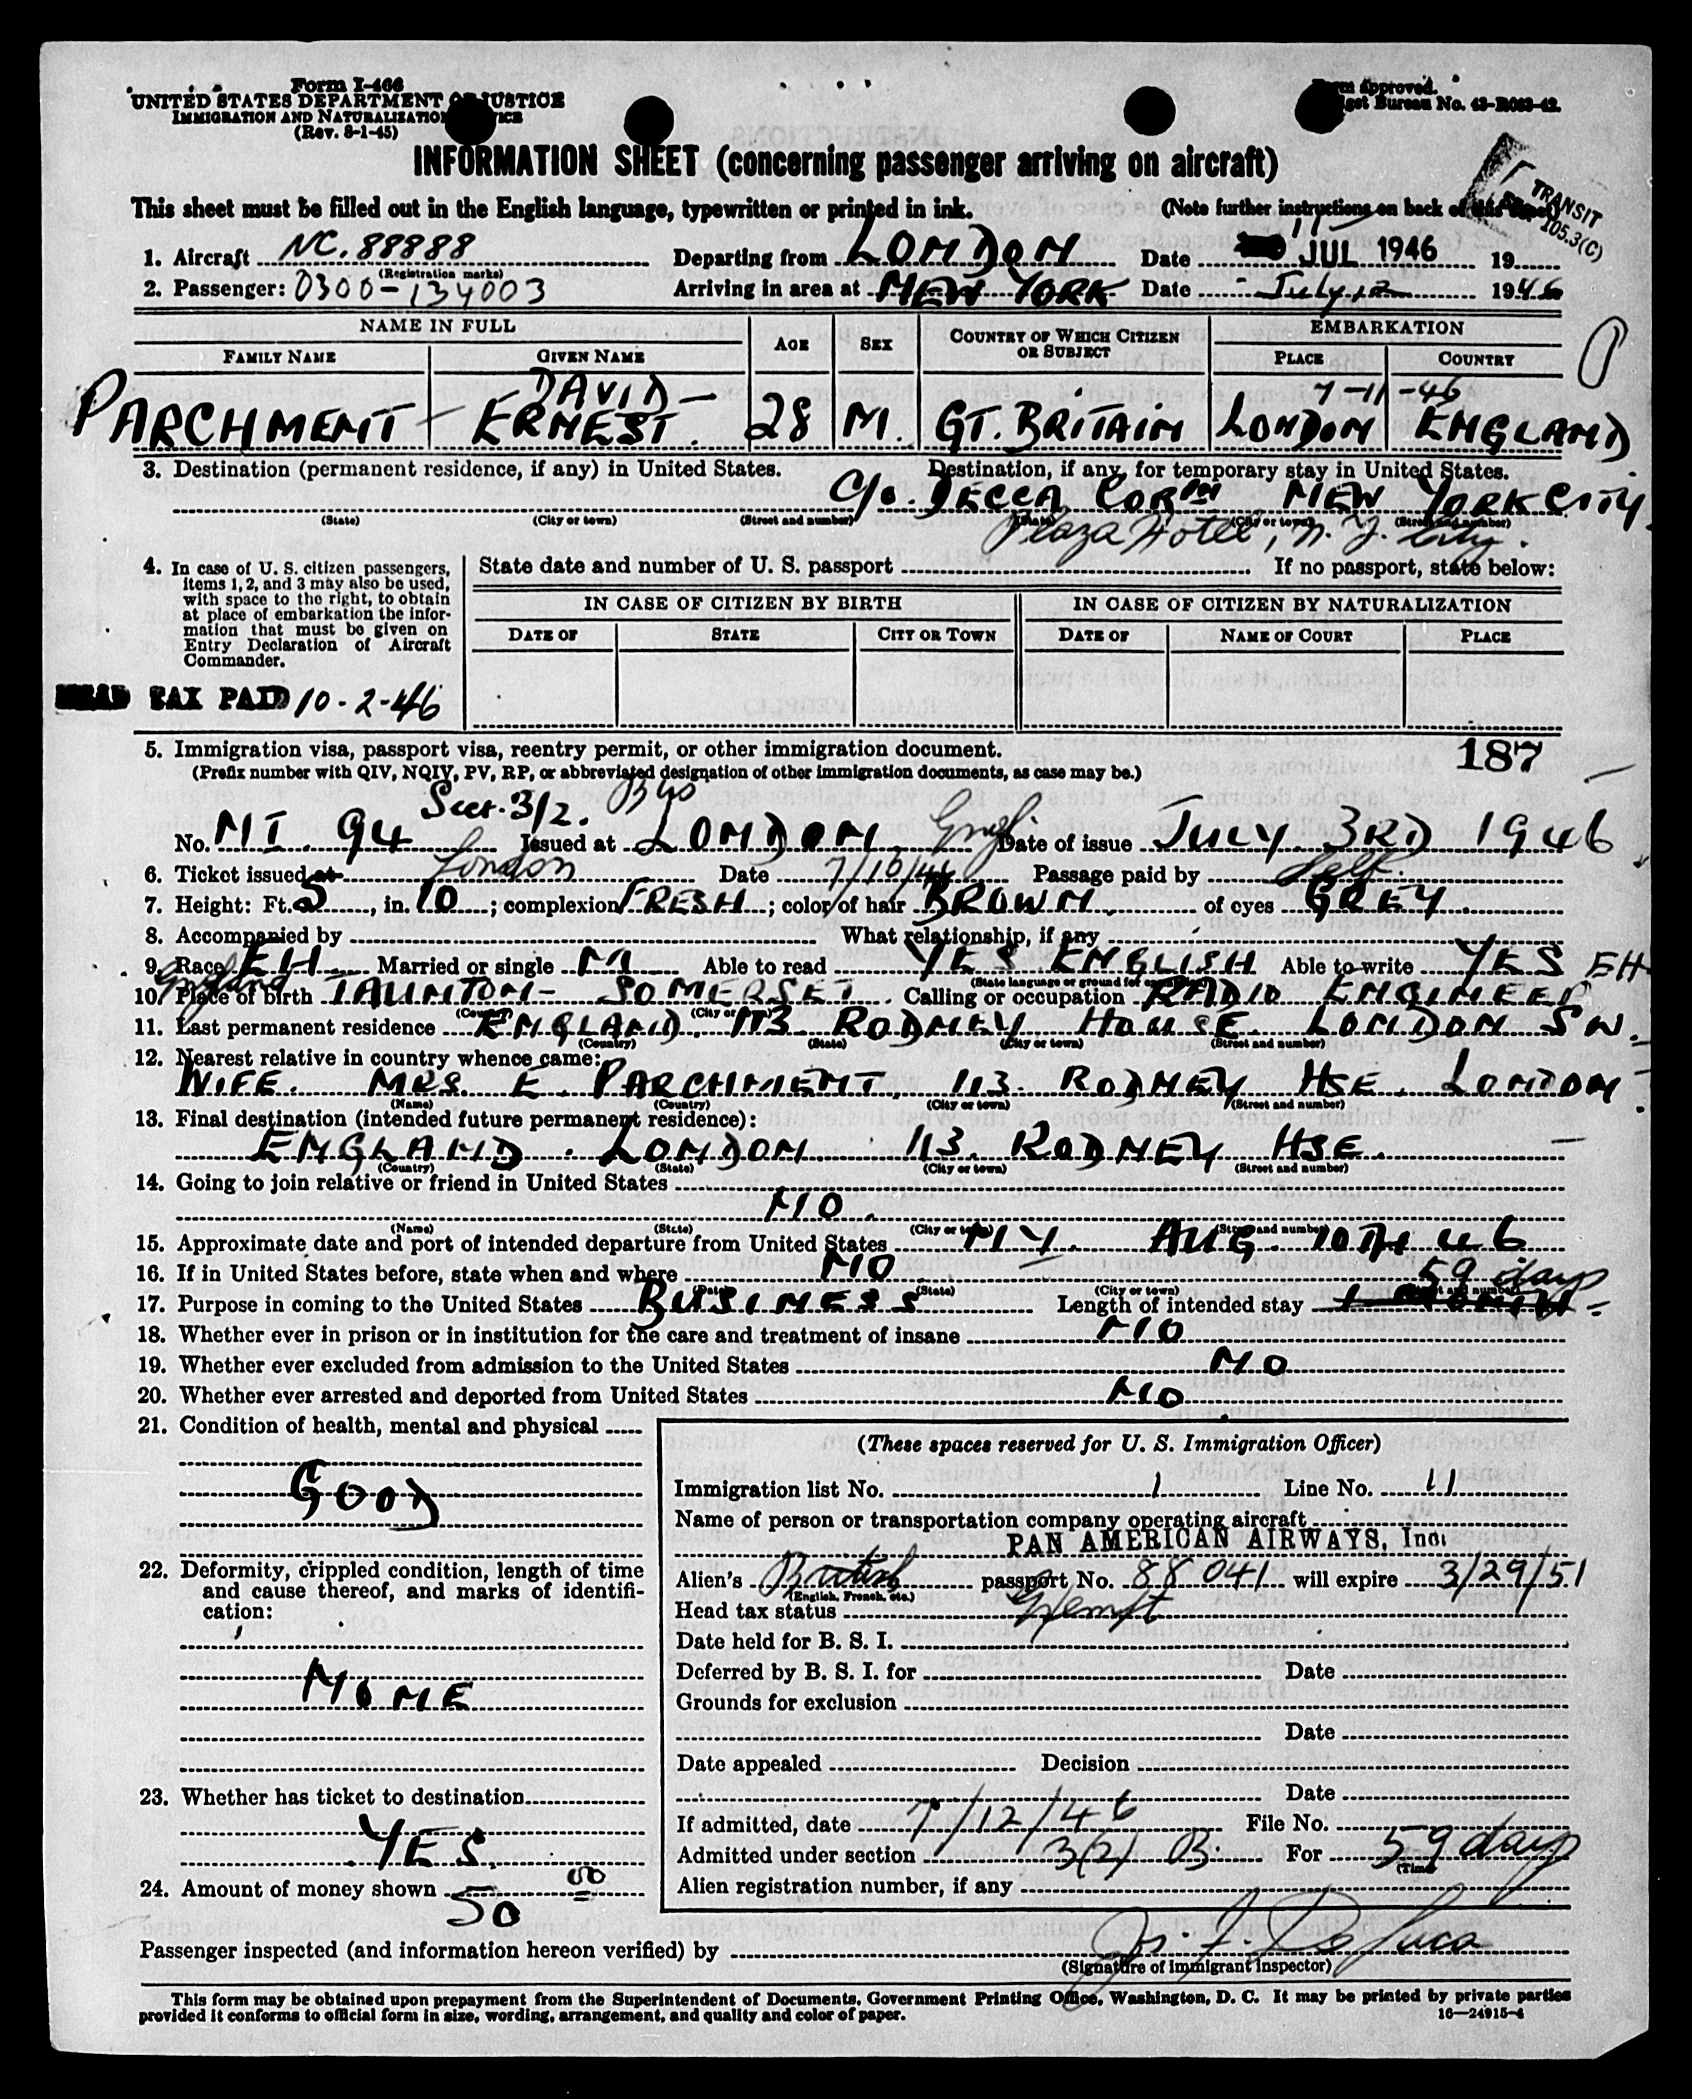 Form I-466
UNITED STATES DEPARTMENT OF JUSTICE
IMMIGRATION AND NATURALIZATION SERVICE
(Rev. 8-1-45)
Form approved.
Budget Bureau No. 43-R083-42.
INFORMATION SHEET (concerning passenger arriving on aircraft)
TRANSIT
105.3(C)
This sheet must be filled out in the English language, typewritten or printed in ink. (Note further instructions on back of this sheet)
1. Aircraft NC. 88888 Departing from LONDON Date 11 JUL 1946 19
(Registration marks)
2. Passenger: 0300-134003 Arriving in area at NEW YORK Date July 12 1946
NAME IN FULL
FAMILY NAME GIVEN NAME AGE SEX COUNTRY OF WHICH CITIZEN OR SUBJECT EMBARKATION
PLACE COUNTRY
DAVID 7-11-46
PARCHMENT ERNEST. 28 M. GT. BRITAIN LONDON ENGLAND.
3. Destination (permanent residence, if any) in United States. Destination, if any, for temporary stay in United States.
C/o. DECCA CORPN NEW YORK CITY.
(State) (City or town) (Street and number) (State) (City or town) (Street and number)
Plaza Hotel, N. Y. City.
4. In case of U. S. citizen passengers, items 1, 2, and 3 may also be used, with space to the right, to obtain at place of embarkation the information that must be given on Entry Declaration of Aircraft Commander.
State date and number of U. S. passport If no passport, state below:
IN CASE OF CITIZEN BY BIRTH IN CASE OF CITIZEN BY NATURALIZATION
DATE OF STATE CITY OR TOWN DATE OF NAME OF COURT PLACE
HEAD TAX PAID 10-2-46
5. Immigration visa, passport visa, reentry permit, or other immigration document. 187
(Prefix number with QIV, NQIV, PV, RP, or abbreviated designation of other immigration documents, as case may be.)
Sect. 3/2.
No. NI 94 Issued at LONDON Engl. Date of issue JULY 3RD 1946.
6. Ticket issued at London Date 7/10/46 Passage paid by Self
7. Height: Ft. 5, in. 10; complexion FRESH; color of hair BROWN of eyes GREY.
8. Accompanied by What relationship, if any
9. Race EH Married or single M Able to read YES ENGLISH Able to write YES EH
(State language or ground for exemption)
England
10. Place of birth TAUNTON - SOMERSET. Calling or occupation RADIO ENGINEER
(Country) (City or town)
11. Last permanent residence ENGLAND 113 RODNEY HOUSE LONDON SW.
(Country) (State) (City or town) (Street and number)
12. Nearest relative in country whence came:
WIFE. MRS. E. PARCHMENT, 113. RODNEY HSE. LONDON.
(Name) (Country) (City or town) (Street and number)
13. Final destination (intended future permanent residence):
ENGLAND. LONDON 113. RODNEY HSE.
(Country) (State) (City or town) (Street and number)
14. Going to join relative or friend in United States
NO.
(Name) (State) (City or town) (Street and number)
15. Approximate date and port of intended departure from United States NY. AUG. 10TH 46
16. If in United States before, state when and where NO
(Date) (State) (City or town) (Street and number)
59 days
17. Purpose in coming to the United States BUSINESS Length of intended stay 1 MONTH
18. Whether ever in prison or in institution for the care and treatment of insane NO
19. Whether ever excluded from admission to the United States NO
20. Whether ever arrested and deported from United States NO
21. Condition of health, mental and physical
GOOD
22. Deformity, crippled condition, length of time and cause thereof, and marks of identification:
NONE
23. Whether has ticket to destination
YES.
24. Amount of money shown 50 00
(These spaces reserved for U. S. Immigration Officer)
Immigration list No. 1 Line No. 11
Name of person or transportation company operating aircraft
PAN AMERICAN AIRWAYS, Inc.
Alien's British passport No. 88041 will expire 3/29/51
(English, French, etc.)
Head tax status Exempt
Date held for B. S. I.
Deferred by B. S. I. for Date
Grounds for exclusion
Date
Date appealed Decision
Date
If admitted, date 7/12/46 File No.
Admitted under section 3(2) B. For 59 days
(Time)
Alien registration number, if any
Passenger inspected (and information hereon verified) by
(Signature of immigrant inspector)
This form may be obtained upon prepayment from the Superintendent of Documents, Government Printing Office, Washington, D. C. It may be printed by private parties
provided it conforms to official form in size, wording, arrangement, and quality and color of paper. 16—24915-4